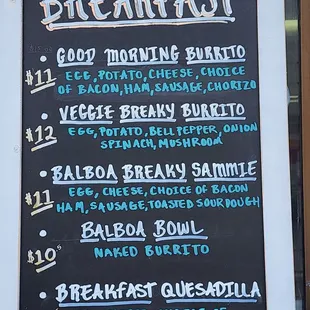 BREAKFAST
• GOOD MORNING BURRITO
$11 EGG, POTATO, CHEESE, CHOICE
OF BACON, HAM, SAUSAGE, CHORIZO
• VEGGIE BREAKY BURRITO
$12 EGG, POTATO, BELL PEPPER, ONION
SPINACH, MUSHROOM
• BALBOA BREAKY SAMMIE
$11 EGG, CHEESE, CHOICE OF BACON
HAM, SAUSAGE, TOASTED SOURDOUGH
• BALBOA BOWL
$10 NAKED BURRITO
• BREAKFAST QUESADILLA